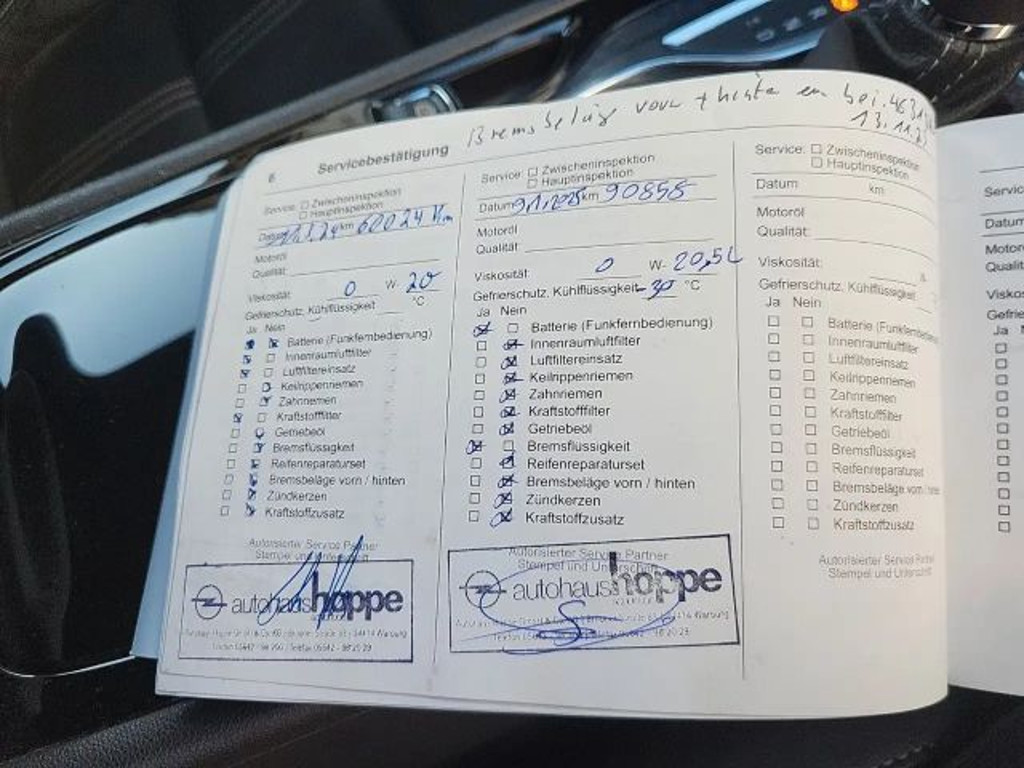 6 Servicebestätigung Bremsbeläge vorn + hinten
13.11.
Service: □ Zwischeninspektion
□ Hauptinspektion
Datum km 60024 Km
Motoröl
Qualität:
Viskosität: 0 W- 20
Gefrierschutz, Kühlflüssigkeit °C
Ja Nein
Batterie (Funkfernbedienung)
Innenraumluftfilter
Luftfiltereinsatz
Keilrippenriemen
Zahnriemen
Kraftstofffilter
Getriebeöl
Bremsflüssigkeit
Reifenreparaturset
Bremsbeläge vorn / hinten
Zündkerzen
Kraftstoffzusatz
Autorisierter Service Partner
Stempel und Unterschrift
autohaus hoppe
Service: □ Zwischeninspektion
□ Hauptinspektion
Datum 9.1.2025 km 90858
Motoröl
Qualität:
Viskosität: 0 W- 20,5L
Gefrierschutz, Kühlflüssigkeit -30 °C
Ja Nein
Batterie (Funkfernbedienung)
Innenraumluftfilter
Luftfiltereinsatz
Keilrippenriemen
Zahnriemen
Kraftstofffilter
Getriebeöl
Bremsflüssigkeit
Reifenreparaturset
Bremsbeläge vorn / hinten
Zündkerzen
Kraftstoffzusatz
Autorisierter Service Partner
Stempel und Unterschrift
autohaus hoppe
Service: □ Zwischeninspektion
□ Hauptinspektion
Datum km
Motoröl
Qualität:
Viskosität:
Gefrierschutz, Kühlflüssigkeit
Ja Nein
Batterie (Funkfernbedienung)
Innenraumluftfilter
Luftfiltereinsatz
Keilrippenriemen
Zahnriemen
Kraftstofffilter
Getriebeöl
Bremsflüssigkeit
Reifenreparaturset
Bremsbeläge vorn / hinten
Zündkerzen
Kraftstoffzusatz
Autorisierter Service Partner
Stempel und Unterschrift